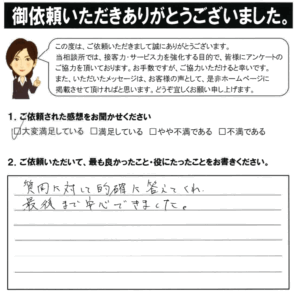 御依頼いただきありがとうございました。
この度は、ご依頼いただきまして誠にありがとうございます。
当相談所では、接客力・サービス力を強化する目的で、皆様にアンケートの
ご協力を頂いております。お手数ですが、ご協力いただけると幸いです。
また、いただいたメッセージは、お客様の声として、是非ホームページに
掲載させて頂ければと思います。どうぞ宜しくお願い申し上げます。
1. ご依頼された感想をお聞かせください
☑大変満足している □満足している □やや不満である □不満である
2. ご依頼いただいて、最も良かったこと・役にたったことをお書きください。
質問に対して的確に答えてくれ
最後まで安心できました。